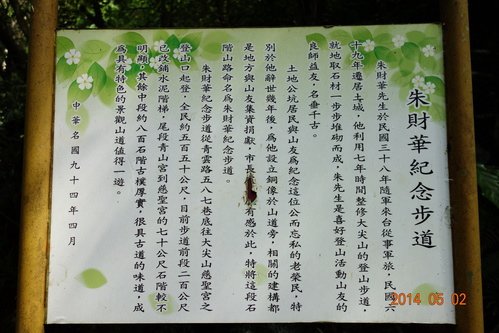 朱財華紀念步道
朱財華先生於民國三十八年隨軍來台從事軍旅，民國六
十九年遷居土城，他利用七年時間整修大尖山的登山步道，
就地取石材一步步堆砌而成，朱先生是喜好登山活動山友的
良師益友，名垂千古。
土地公坑居民與山友為紀念這位公而忘私的老榮民，特
別於他辭世幾年後，為他設立銅像於山道旁，相關的建構都
是地方與山友集資捐獻，市長 有感於此，特將這段石
階山路命名為朱財華紀念步道。
朱財華紀念步道從青雲路五八七巷底往大尖山慈聖宮之
登山口起登，全民約五百五十公尺，目前步道前段二百公尺
已改鋪水泥階梯，尾段青山宮到慈聖宮的七十公尺石階較不
明顯，其餘中段約八百石階古樸厚實，很具古道的味道，成
為具有特色的景觀山道值得一遊。
中華民國九十四年四月
2014 05 02